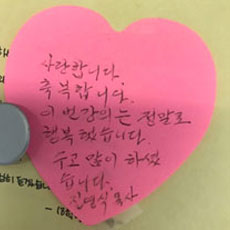 사랑합니다.
축복합니다.
이번강의는 정말로
행복했습니다.
수고 많이 하셨
습니다.
목사